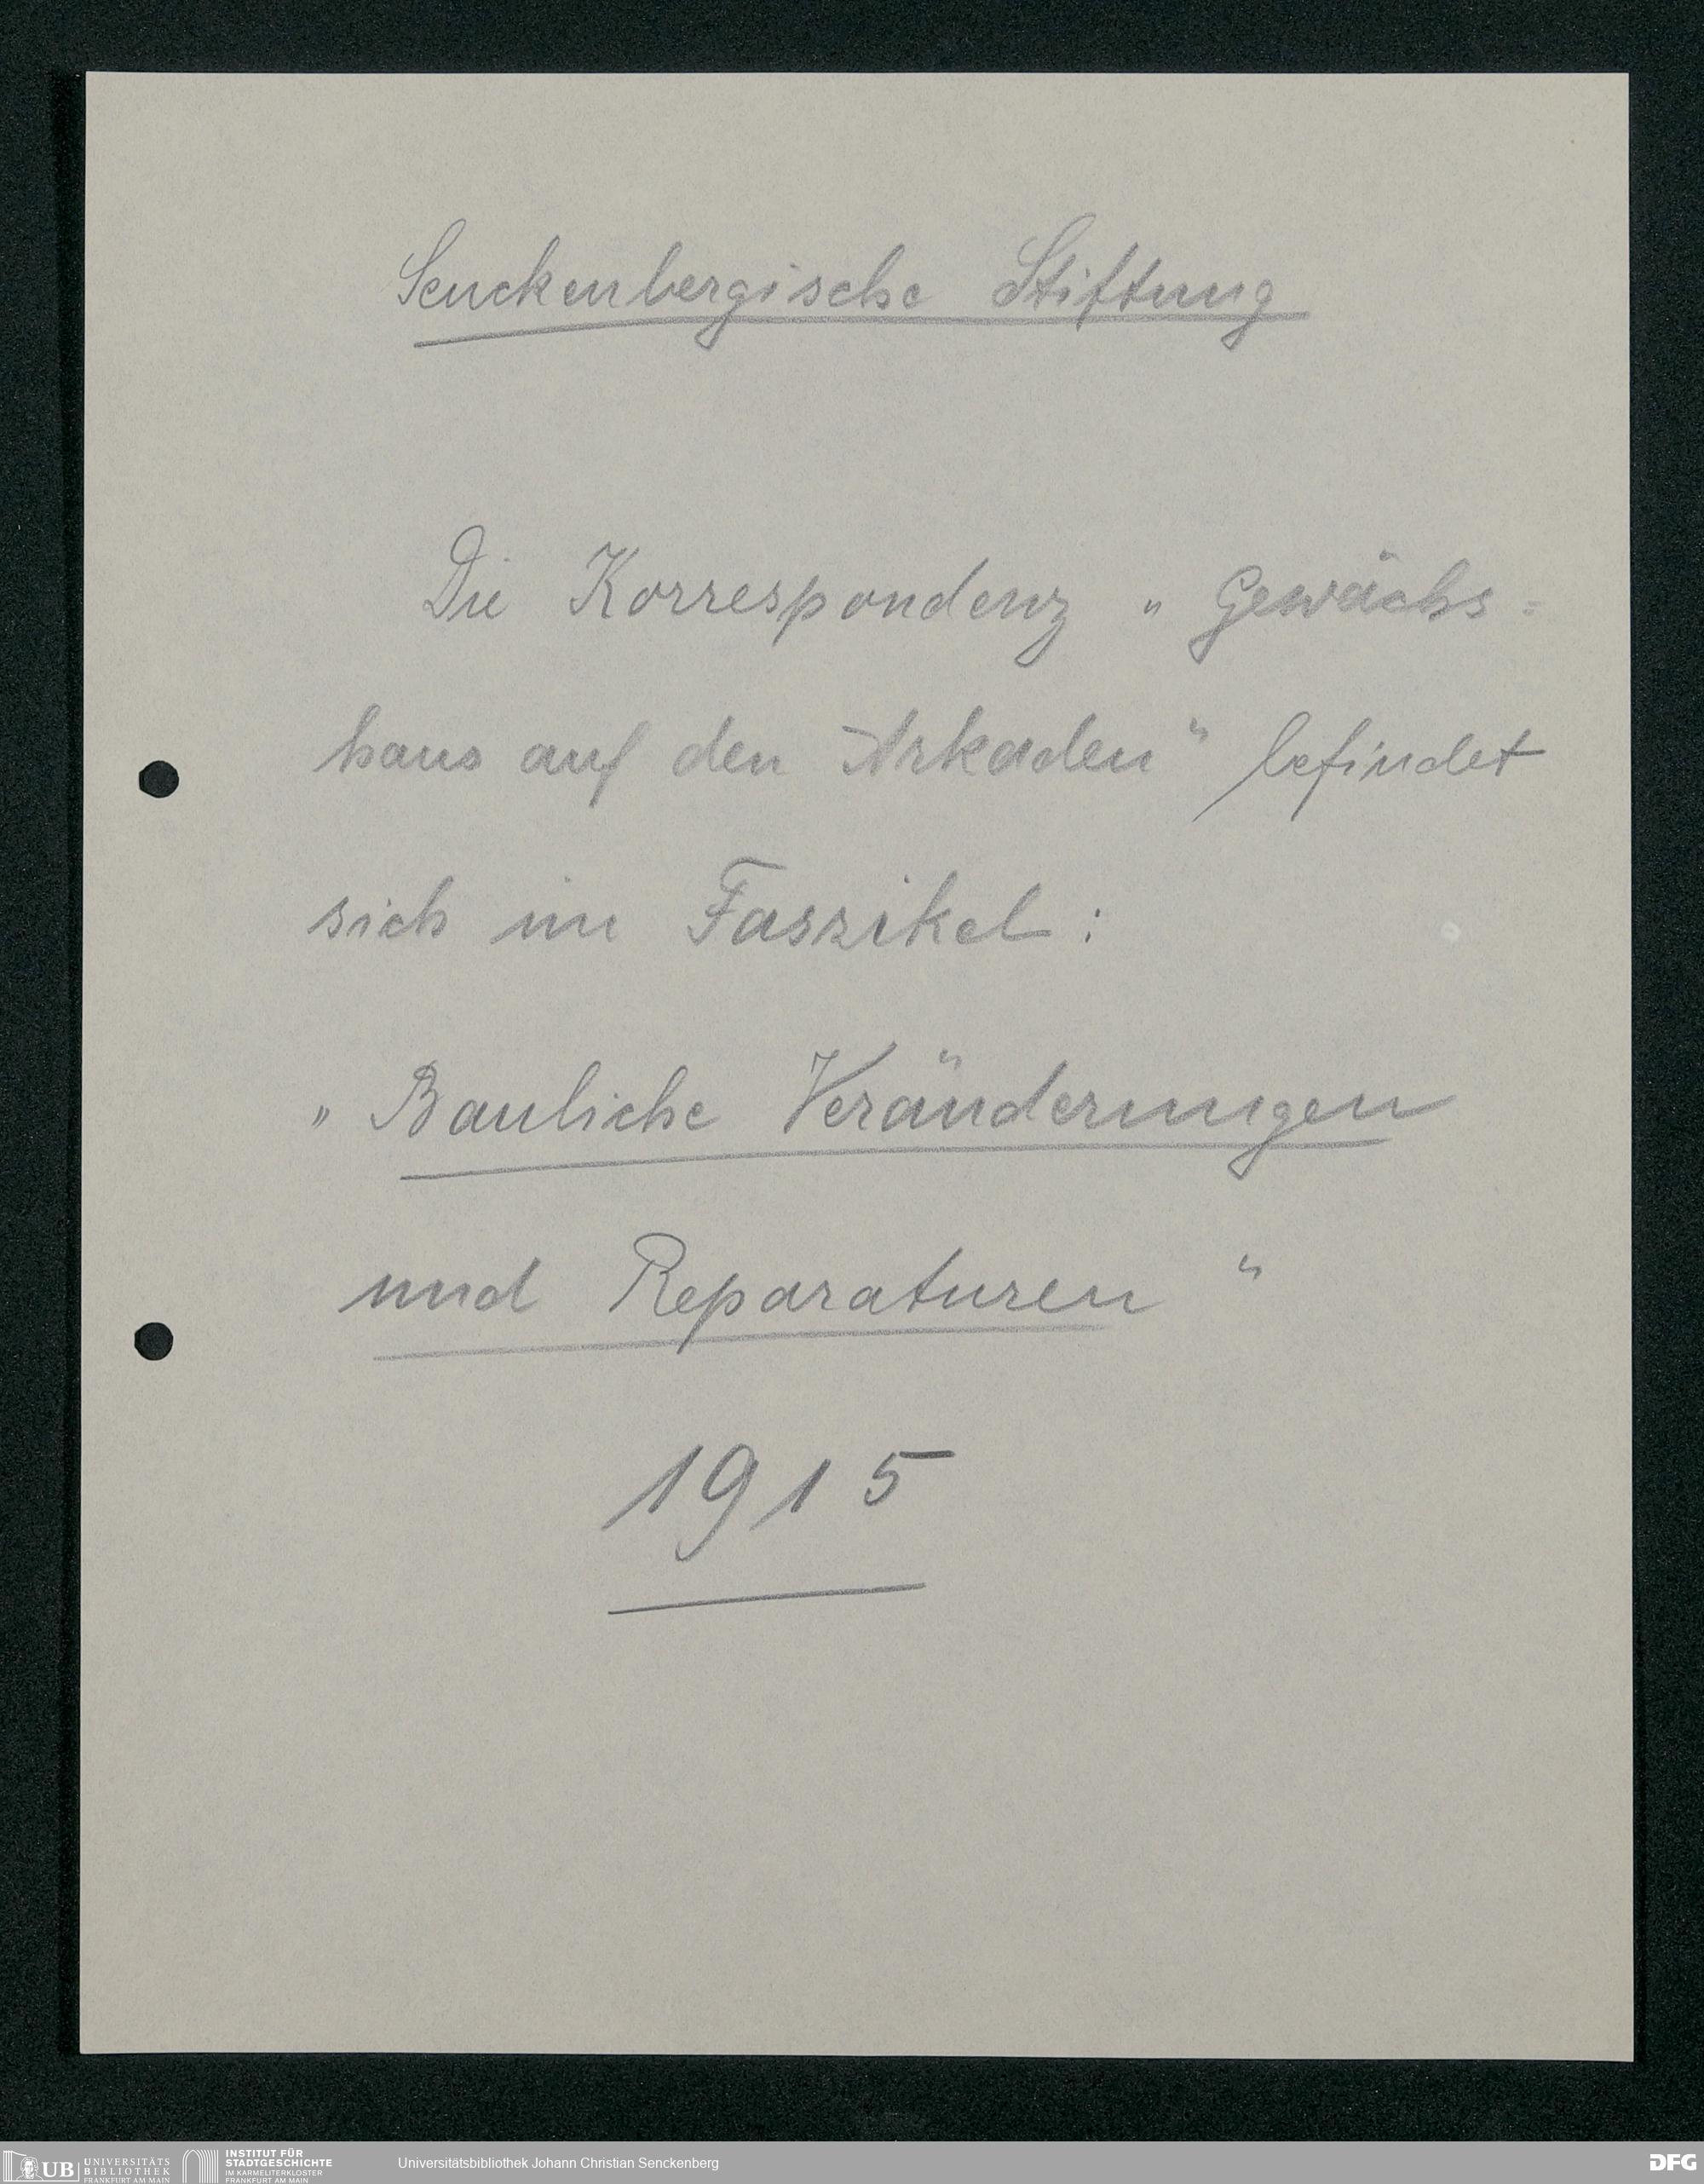 Senckenbergische Stiftung
Die Korrespondenz " Gewächs=
haus auf den Arkaden" befindet
sich im Faszikel :
" Bauliche Veränderungen
und Reparaturen "
1915
UB UNIVERSITÄTS
BIBLIOTHEK
FRANKFURT AM MAIN
INSTITUT FÜR
STADTGESCHICHTE
IM KARMELITERKLOSTER
FRANKFURT AM MAIN
Universitätsbibliothek Johann Christian Senckenberg
DFG